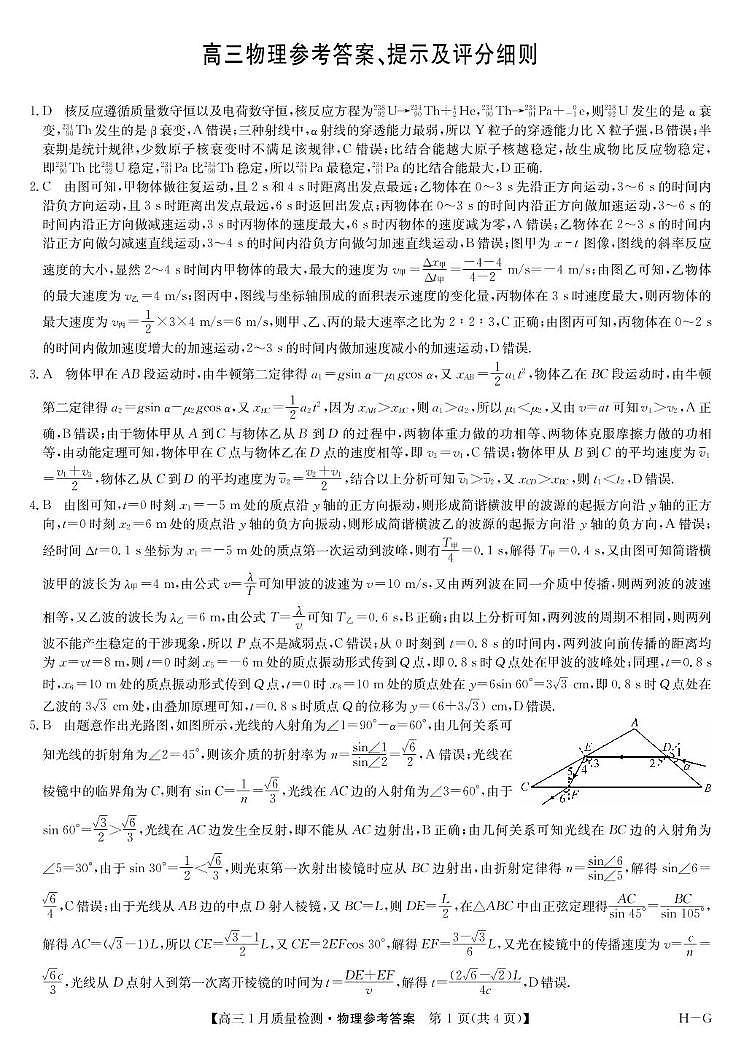 高三物理参考答案、提示及评分细则
1.D 核反应遵循质量数守恒以及电荷数守恒,核反应方程为²³⁸₉₂U→²³⁴₉₀Th+⁴₂He,²³⁴₉₀Th→²³⁴₉₁Pa+⁰₋₁e,则²³⁸₉₂U 发生的是 α 衰
变,²³⁴₉₀Th 发生的是 β 衰变,A 错误;三种射线中,α 射线的穿透能力最弱,所以 Y 粒子的穿透能力比 X 粒子强,B 错误;半
衰期是统计规律,少数原子核衰变时不满足该规律,C 错误;比结合能越大原子核越稳定,故生成物比反应物稳定,
即²³⁴₉₀Th 比²³⁸₉₂U 稳定,²³⁴₉₁Pa 比²³⁴₉₀Th 稳定,所以²³⁴₉₁Pa 最稳定,²³⁴₉₁Pa 的比结合能最大,D 正确.
2.C 由图可知,甲物体做往复运动,且 2 s 和 4 s 时距离出发点最远;乙物体在 0~3 s 先沿正方向运动,3~6 s 的时间内
沿负方向运动,且 3 s 时距离出发点最远,6 s 时返回出发点;丙物体在 0~3 s 的时间内沿正方向做加速运动,3~6 s 的
时间内沿正方向做减速运动,3 s 时丙物体的速度最大,6 s 时丙物体的速度减为零,A 错误;乙物体在 2~3 s 的时间内
沿正方向做匀减速直线运动,3~4 s 的时间内沿负方向做匀加速直线运动,B 错误;图甲为 x-t 图像,图线的斜率反应
速度的大小,显然 2~4 s 时间内甲物体的最大,最大的速度为 v甲=Δx甲/Δt甲=(-4-4)/(4-2) m/s=-4 m/s;由图乙可知,乙物体
的最大速度为 v乙=4 m/s;图丙中,图线与坐标轴围成的面积表示速度的变化量,丙物体在 3 s 时速度最大,则丙物体的
最大速度为 v丙=1/2×3×4 m/s=6 m/s,则甲、乙、丙的最大速率之比为 2∶2∶3,C 正确;由图丙可知,丙物体在 0~2 s
的时间内做加速度增大的加速运动,2~3 s 的时间内做加速度减小的加速运动,D 错误.
3.A 物体甲在 AB 段运动时,由牛顿第二定律得 a₁=gsin α-μ₁gcos α,又 x_AB=1/2 a₁t²,物体乙在 BC 段运动时,由牛顿
第二定律得 a₂=gsin α-μ₂gcos α,又 x_BC=1/2 a₂t²,因为 x_AB>x_BC,则 a₁>a₂,所以 μ₁<μ₂,又由 v=at 可知 v₁>v₂,A 正
确,B 错误;由于物体甲从 A 到 C 与物体乙从 B 到 D 的过程中,两物体重力做的功相等、两物体克服摩擦力做的功相
等,由动能定理可知,物体甲在 C 点与物体乙在 D 点的速度相等,即 v₃=v₄,C 错误;物体甲从 B 到 C 的平均速度为 v̄₁
=(v₁+v₃)/2,物体乙从 C 到 D 的平均速度为 v̄₂=(v₂+v₄)/2,结合以上分析可知 v̄₁>v̄₂,又 x_CD>x_BC,则 t₁<t₂,D 错误.
4.B 由图可知,t=0 时刻 x₁=-5 m 处的质点沿 y 轴的正方向振动,则形成简谐横波甲的波源的起振方向沿 y 轴的正方
向,t=0 时刻 x₂=6 m 处的质点沿 y 轴的负方向振动,则形成简谐横波乙的波源的起振方向沿 y 轴的负方向,A 错误;
经时间 Δt=0.1 s 坐标为 x₁=-5 m 处的质点第一次运动到波峰,则有T甲/4=0.1 s,解得 T甲=0.4 s,又由图可知简谐横
波甲的波长为 λ甲=4 m,由公式 v=λ/T可知甲波的波速为 v=10 m/s,又由两列波在同一介质中传播,则两列波的波速
相等,又乙波的波长为 λ乙=6 m,由公式 T=λ/v可知 T乙=0.6 s,B 正确;由以上分析可知,两列波的周期不相同,则两列
波不能产生稳定的干涉现象,所以 P 点不是减弱点,C 错误;从 0 时刻到 t=0.8 s 的时间内,两列波向前传播的距离均
为 x=vt=8 m,则 t=0 时刻 x₅=-6 m 处的质点振动形式传到 Q 点,即 0.8 s 时 Q 点处在甲波的波峰处;同理,t=0.8 s
时,x₆=10 m 处的质点振动形式传到 Q 点,t=0 时 x₆=10 m 处的质点处在 y=6sin 60°=3√3 cm,即 0.8 s 时 Q 点处在
乙波的 3√3 cm 处,由叠加原理可知,t=0.8 s 时质点 Q 的位移为 y=(6+3√3) cm,D 错误.
5.B 由题意作出光路图,如图所示,光线的入射角为∠1=90°-α=60°,由几何关系可
知光线的折射角为∠2=45°,则该介质的折射率为 n=sin∠1/sin∠2=√6/2,A 错误;光线在
棱镜中的临界角为 C,则有 sin C=1/n=√6/3,光线在 AC 边的入射角为∠3=60°,由于
sin 60°=√3/2>√6/3,光线在 AC 边发生全反射,即不能从 AC 边射出,B 正确;由几何关系可知光线在 BC 边的入射角为
∠5=30°,由于 sin 30°=1/2<√6/3,则光束第一次射出棱镜时应从 BC 边射出,由折射定律得 n=sin∠6/sin∠5,解得 sin∠6=
√6/4,C 错误;由于光线从 AB 边的中点 D 射入棱镜,又 BC=L,则 DE=L/2,在△ABC 中由正弦定理得AC/sin 45°=BC/sin 105°,
解得 AC=(√3-1)L,所以 CE=(√3-1)/2 L,又 CE=2EFcos 30°,解得 EF=(3-√3)/6 L,又光在棱镜中的传播速度为 v=c/n=
√6c/3,光线从 D 点射入到第一次离开棱镜的时间为 t=(DE+EF)/v,解得 t=(2√6-√2)L/4c,D 错误.
A
E
D
1
3
2
α
4
5
C
6
F
B
【高三 1 月质量检测·物理参考答案 第 1 页(共 4 页)】
H-G